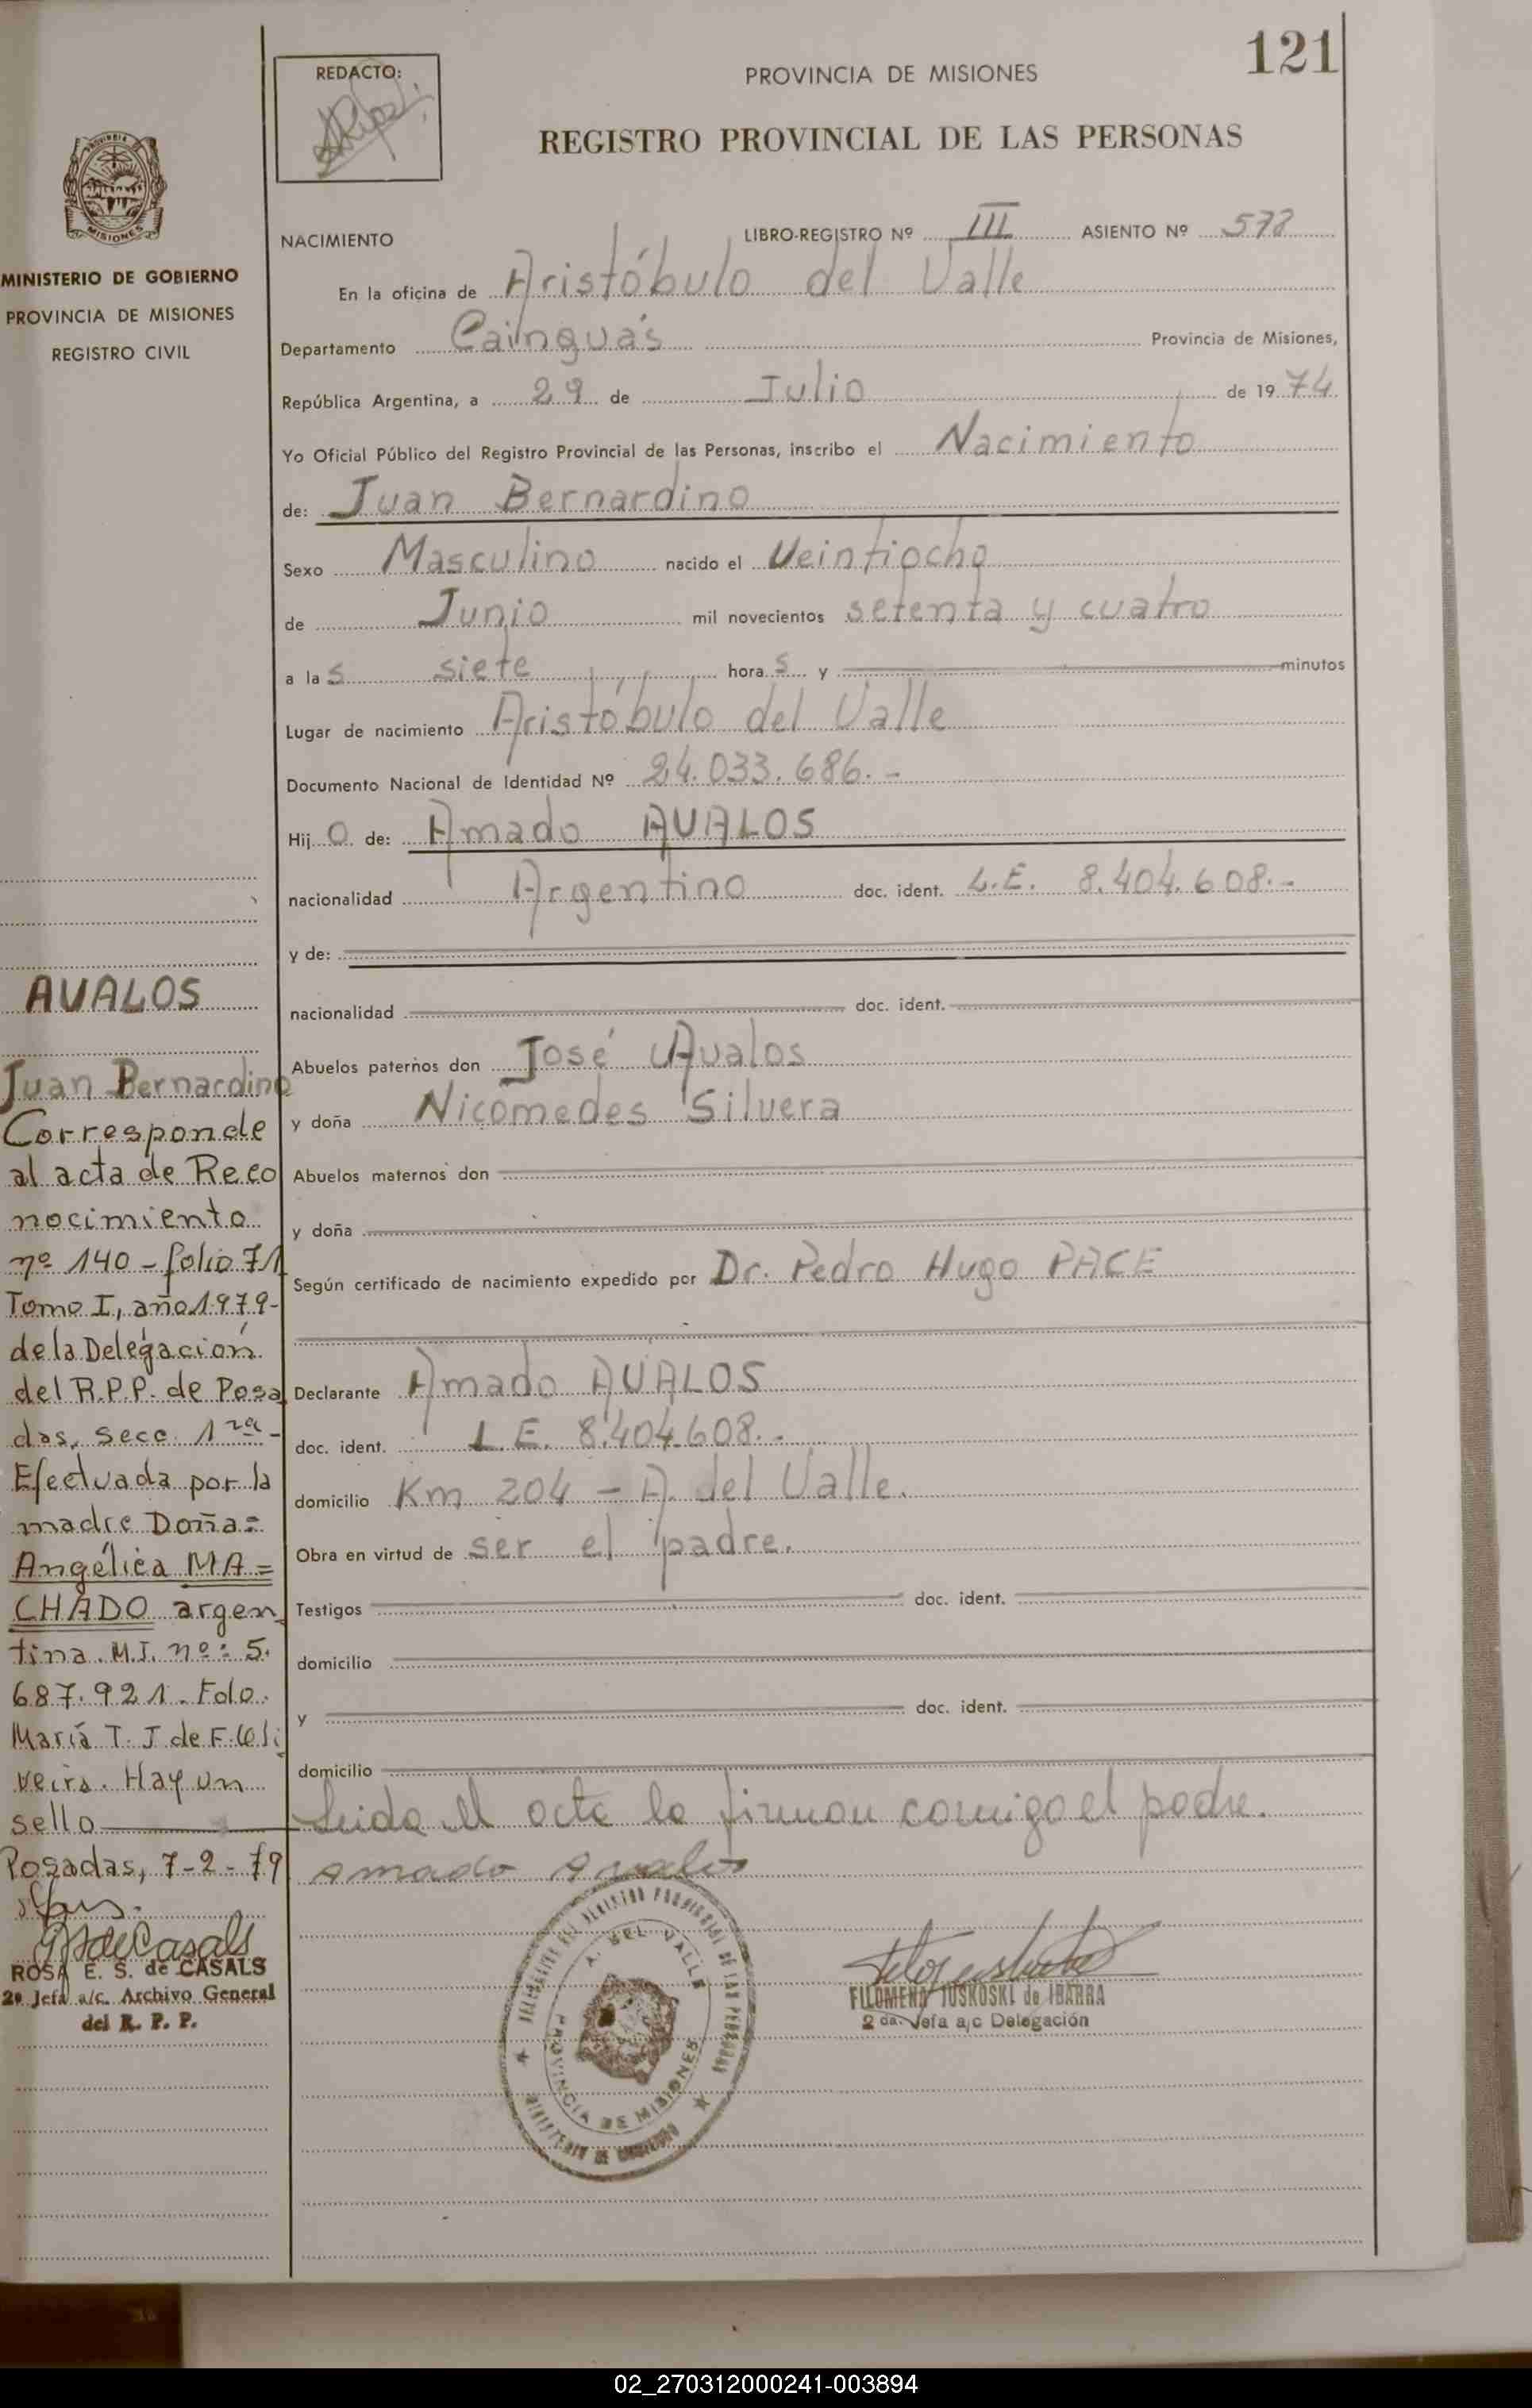 121
REDACTO:
PROVINCIA DE MISIONES
REGISTRO PROVINCIAL DE LAS PERSONAS
MISIONES
MINISTERIO DE GOBIERNO
PROVINCIA DE MISIONES
REGISTRO CIVIL
NACIMIENTO LIBRO-REGISTRO Nº III ASIENTO Nº 578
En la oficina de Aristóbulo del Valle
Departamento Cainguás Provincia de Misiones,
República Argentina, a 29 de Julio de 1974
Yo Oficial Público del Registro Provincial de las Personas, inscribo el Nacimiento
de: Juan Bernardino
Sexo Masculino nacido el Veintiocho
de Junio mil novecientos setenta y cuatro
a las siete horas y minutos
Lugar de nacimiento Aristóbulo del Valle
Documento Nacional de Identidad Nº 24.033.686.-
Hijo de: Amado AVALOS
nacionalidad Argentino doc. ident. L.E. 8.404.608.-
y de:
nacionalidad doc. ident.
Abuelos paternos don José Avalos
y doña Nicomedes Silvera
Abuelos maternos don
y doña
Según certificado de nacimiento expedido por Dr. Pedro Hugo PACE
Declarante Amado AVALOS
doc. ident. L.E. 8.404.608.-
domicilio Km 204 - A. del Valle.
Obra en virtud de ser el padre.
Testigos doc. ident.
domicilio
y doc. ident.
domicilio
Leida el acta la firman conmigo el padre.
Amado Avalos
DELEGACION DEL REGISTRO PROVINCIAL DE LAS PERSONAS
A. DEL VALLE
PROVINCIA DE MISIONES
MINISTERIO DE GOBIERNO
FILOMENA TUSKOSKI de IBARRA
2da. Jefa a/c Delegación
AVALOS
Juan Bernardino
Corresponde
al acta de Reco
nocimiento
nº 140 - folio 71
Tomo I, año 1979-
de la Delegación
del R.P.P. de Posa
das, Secc. 1ra-
Efectuada por la
madre Doña=
Angélica MA=
CHADO argen
tina. M.I. nº: 5.
687.921. Fdo.
María T. J de F.
veira. Hay un
sello
Posadas, 7-2-79
ROSA E. S. de CASALS
2ª Jefa a/c. Archivo General
del R. P. P.
02_270312000241-003894